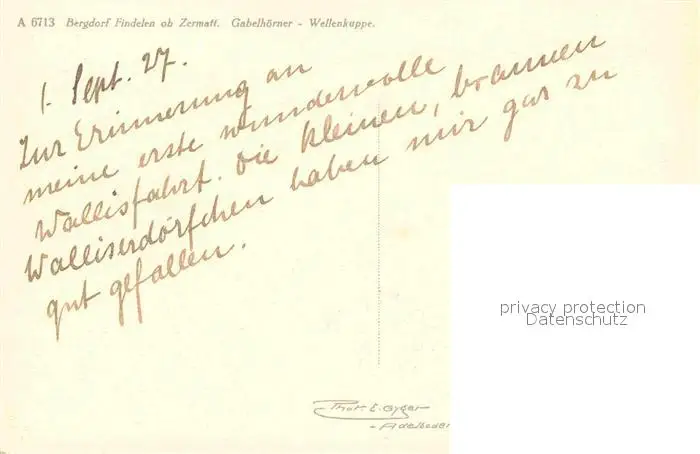 A 6713 Bergdorf Findelen ob Zermatt. Gabelhörner - Wellenkuppe.
1. Sept. 27.
Zur Erinnerung an
meine erste wundervolle
Wallisfahrt. Die kleinen, braunen
Walliserdörfchen haben mir gar zu
gut gefallen.
privacy protection
Datenschutz
Phot. E. Gyger
- Adelboden